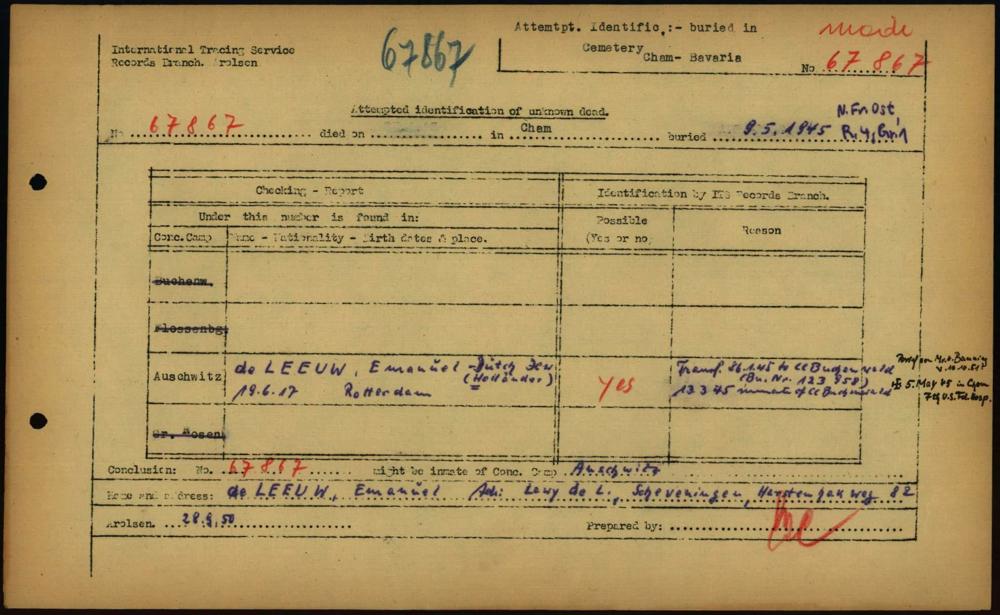 International Tracing Service
Records Branch. Arolsen
67867
Attemtpt. Identific.:- buried in
Cemetery
Cham- Bavaria
made
No 67 867
Attempted identification of unknown dead.
N. Fr. Ost,
R. 4, Gr. 1
No 67867 died on in Cham buried 9.5.1945
Checking - Report
Identification by ITS Records Branch.
Under this number is found in:
Possible
(Yes or no)
Reason
Conc.Camp
Name - Nationality - Birth dates & place.
Buchenw.
Flossenbg.
Auschwitz
de LEEUW, Emanuel - Dutch Jew
(Holländer)
19.6.17 Rotterdam
yes
Transf. 26.1.45 to CC Buchenwald
(Bu. Nr. 123 958)
13.3.45 inmate of CC Buchenwald
v. 10.10.51
5. May 45 in Cham
7th U.S. Fd. Hosp.
Gr. Rosen
Conclusion: No. 67867 might be inmate of Conc. Camp Auschwitz
Name and address: de LEEUW, Emanuel Adr: Levy de L., Scheveningen, 82
Arolsen. 28.9.50
Prepared by: